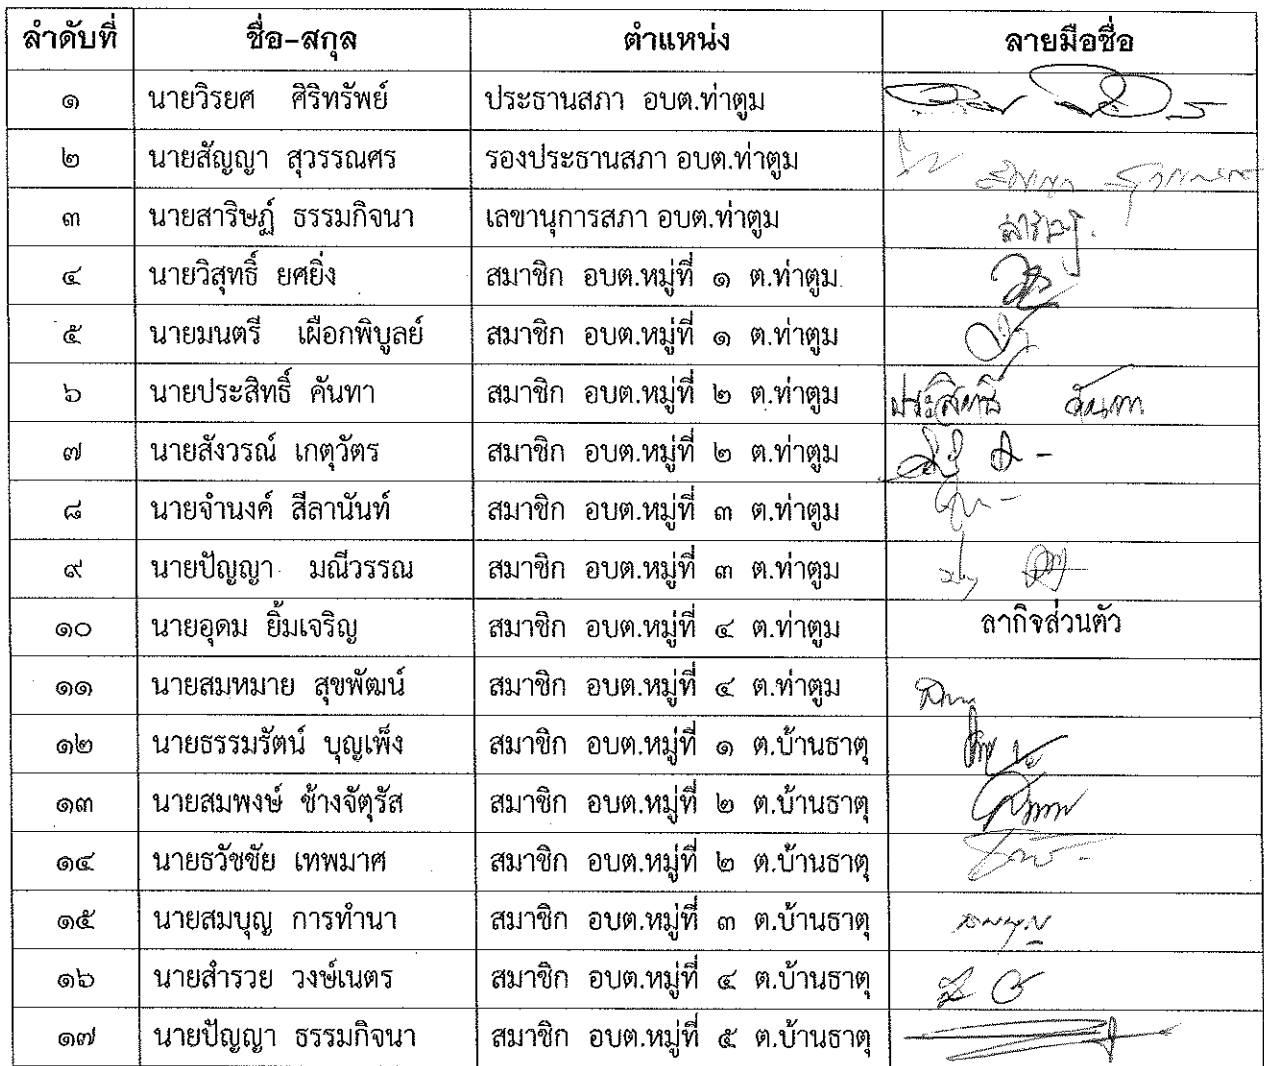 ลำดับที่ ชื่อ-สกุล ตำแหน่ง ลายมือชื่อ
๑ นายวิรยศ ศิริทรัพย์ ประธานสภา อบต.ท่าตูม
๒ นายสัญญา สุวรรณศร รองประธานสภา อบต.ท่าตูม
๓ นายสาริษฏ์ ธรรมกิจนา เลขานุการสภา อบต.ท่าตูม
๔ นายวิสุทธิ์ ยศยิ่ง สมาชิก อบต.หมู่ที่ ๑ ต.ท่าตูม
๕ นายมนตรี เผือกพิบูลย์ สมาชิก อบต.หมู่ที่ ๑ ต.ท่าตูม
๖ นายประสิทธิ์ คันทา สมาชิก อบต.หมู่ที่ ๒ ต.ท่าตูม ประสิทธิ์ คันทา
๗ นายสังวรณ์ เกตุวัตร สมาชิก อบต.หมู่ที่ ๒ ต.ท่าตูม
๘ นายจำนงค์ สีลานันท์ สมาชิก อบต.หมู่ที่ ๓ ต.ท่าตูม
๙ นายปัญญา มณีวรรณ สมาชิก อบต.หมู่ที่ ๓ ต.ท่าตูม
๑๐ นายอุดม ยิ้มเจริญ สมาชิก อบต.หมู่ที่ ๔ ต.ท่าตูม ลากิจส่วนตัว
๑๑ นายสมหมาย สุขพัฒน์ สมาชิก อบต.หมู่ที่ ๔ ต.ท่าตูม
๑๒ นายธรรมรัตน์ บุญเพ็ง สมาชิก อบต.หมู่ที่ ๑ ต.บ้านธาตุ
๑๓ นายสมพงษ์ ช้างจัตุรัส สมาชิก อบต.หมู่ที่ ๒ ต.บ้านธาตุ
๑๔ นายธวัชชัย เทพมาศ สมาชิก อบต.หมู่ที่ ๒ ต.บ้านธาตุ
๑๕ นายสมบุญ การทำนา สมาชิก อบต.หมู่ที่ ๓ ต.บ้านธาตุ
๑๖ นายสำรวย วงษ์เนตร สมาชิก อบต.หมู่ที่ ๔ ต.บ้านธาตุ
๑๗ นายปัญญา ธรรมกิจนา สมาชิก อบต.หมู่ที่ ๕ ต.บ้านธาตุ